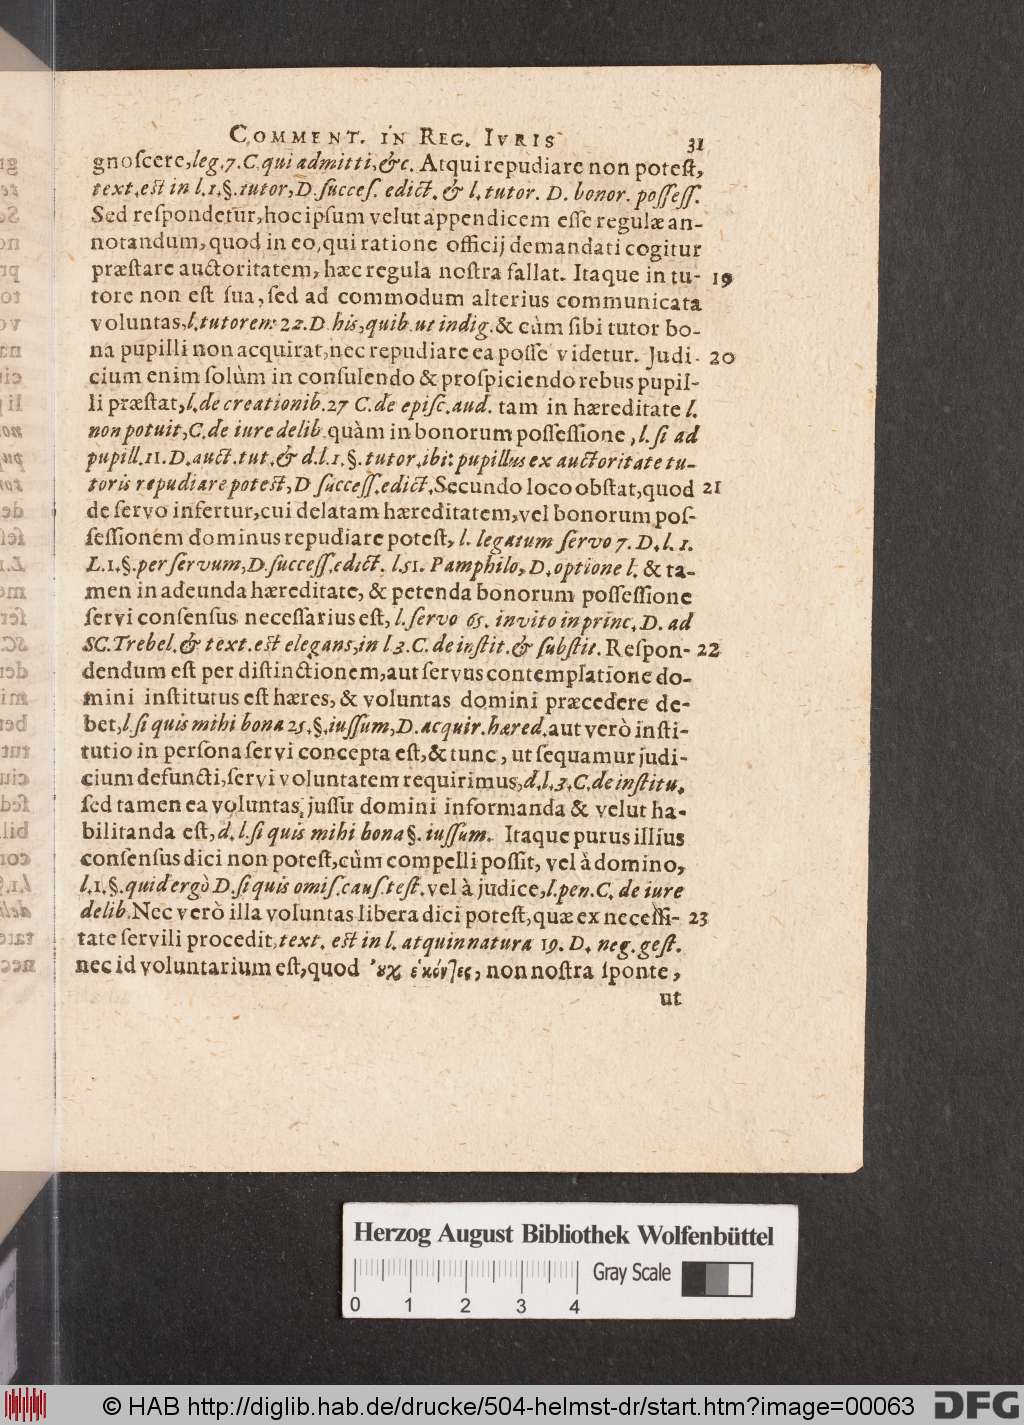 COMMENT. IN REG. IVRIS 31
gnoſcere, leg. 7. C. qui admitti, &c. Atqui repudiare non poteſt,
text. est in l. 1. §. tutor, D. ſucceſ. edict. & l. tutor. D. bonor. poſſeſſ.
Sed reſpondetur, hoc ipſum velut appendicem eſſe regulæ an-
notandum, quod in eo, qui ratione officij demandati cogitur
præſtare auctoritatem, hæc regula noſtra fallat. Itaque in tu- 19
tore non eſt ſua, ſed ad commodum alterius communicata
voluntas, l. tutorem 22. D his, quib. ut indig. & cùm ſibi tutor bo-
na pupilli non acquirat, nec repudiare ea poſſe videtur. Judi- 20
cium enim ſolùm in conſulendo & proſpiciendo rebus pupil-
li præſtat, l. de creationib. 27 C. de epiſc. aud. tam in hæreditate l.
non potuit, C. de iure delib. quàm in bonorum poſſeſſione, l. ſi ad
pupill. 11. D. auct. tut. & d. l. 1. §. tutor. ibi: pupillus ex auctoritate tu-
toris repudiare potest, D ſucceſſ. edict. Secundo loco obſtat, quod 21
de ſervo infertur, cui delatam hæreditatem, vel bonorum poſ-
ſeſſionem dominus repudiare poteſt, l. legatum ſervo 7. D. l. 1.
L. 1. §. per ſervum, D. ſucceſſ. edict. l. 51. Pamphilo, D. optione l. & ta-
men in adeunda hæreditate, & petenda bonorum poſſeſſione
ſervi conſenſus neceſſarius eſt, l. ſervo 65. invito in princ. D. ad
SC. Trebel. & text. est elegans, in l 3. C. de inſtit. & ſubſtit. Reſpon- 22
dendum eſt per diſtinctionem, aut ſervus contemplatione do-
mini inſtitutus eſt hæres, & voluntas domini præcedere de-
bet, l. ſi quis mihi bona 25. §. iuſſum, D. acquir. hæred. aut verò inſti-
tutio in perſona ſervi concepta eſt, & tunc, ut ſequamur judi-
cium defuncti, ſervi voluntatem requirimus, d. l. 3. C. de inſtitu.
ſed tamen ea voluntas, juſſu domini informanda & velut ha-
bilitanda eſt, d. l. ſi quis mihi bona §. iuſſum. Itaque purus illius
conſenſus dici non poteſt, cùm compelli poſſit, vel à domino,
l. 1. §. quid ergò D. ſi quis omiſ. cauſ. teſt. vel à judice, l. pen. C. de iure
delib. Nec verò illa voluntas libera dici poteſt, quæ ex neceſſi- 23
tate ſervili procedit, text. est in l. atqui natura 19. D. neg. geſt.
nec id voluntarium eſt, quod ουχ ἑκόντες, non noſtra ſponte,
ut
Herzog August Bibliothek Wolfenbüttel
Gray Scale
0 1 2 3 4
© HAB http://diglib.hab.de/drucke/504-helmst-dr/start.htm?image=00063
DFG